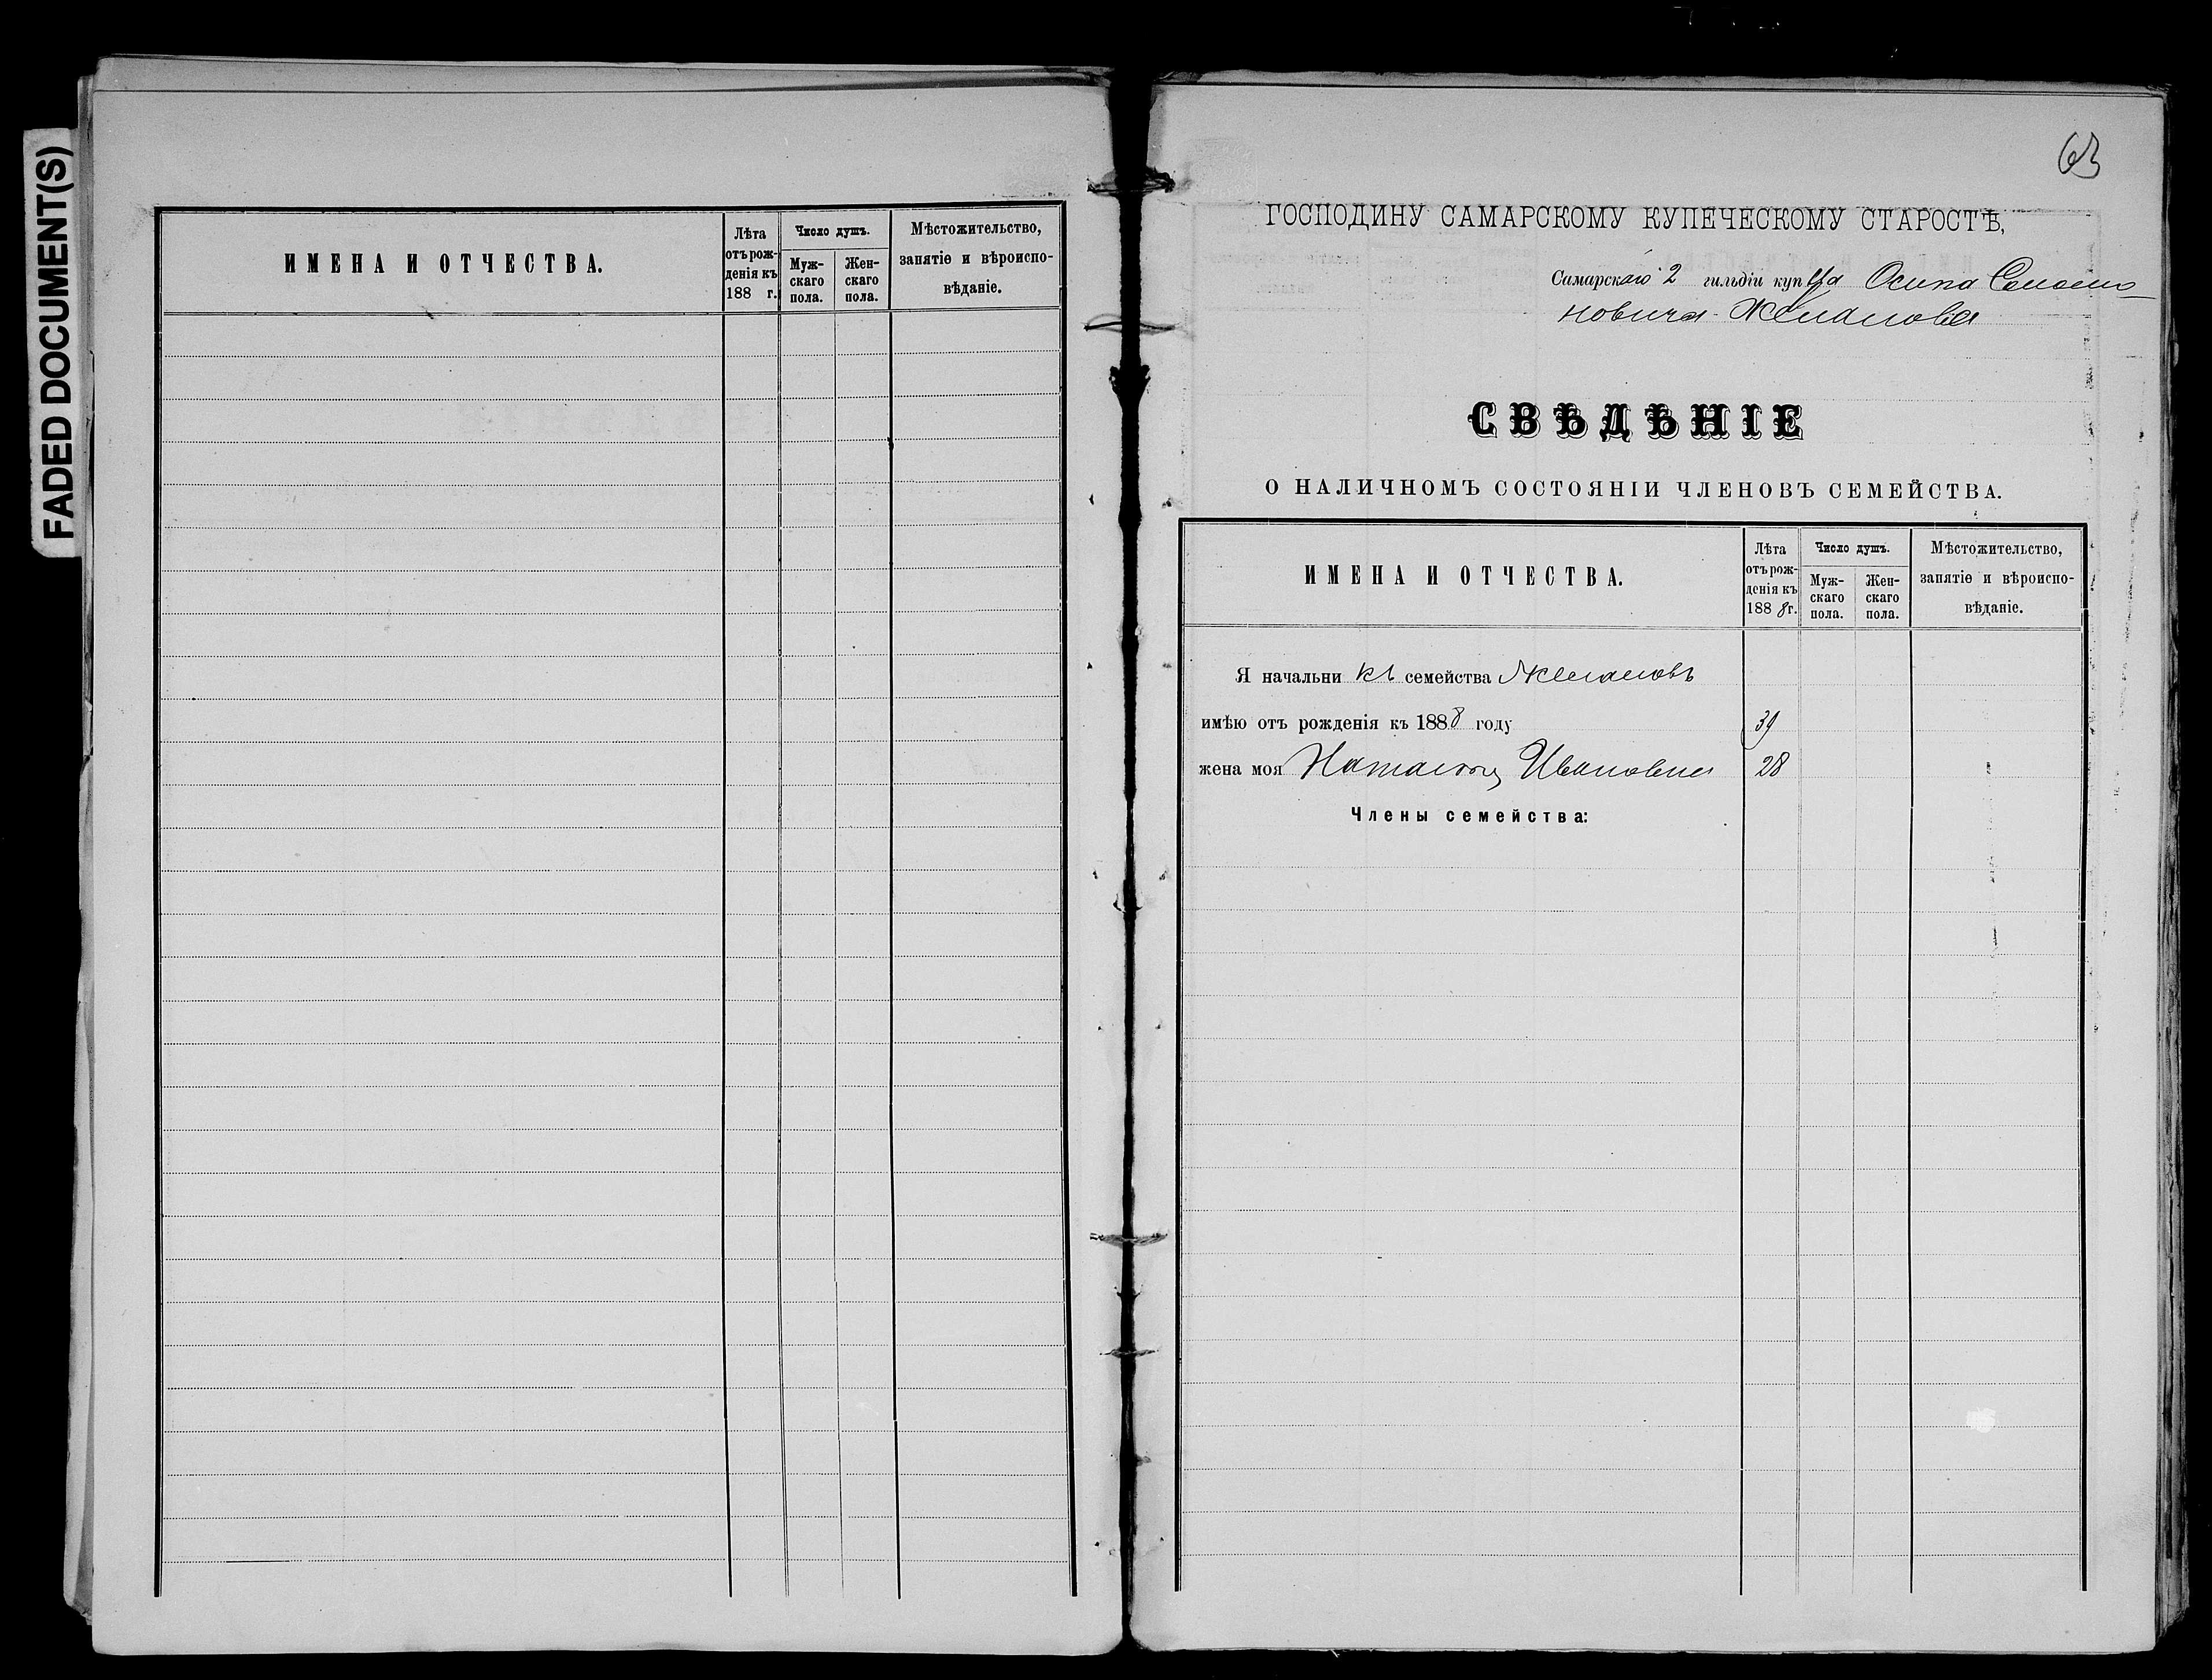 FADED DOCUMENT(S)
ИМЕНА И ОТЧЕСТВА.
Лѣта
отъ рож-
денія къ
188 г.
Число душъ.
Муж-
скаго
пола.
Жен-
скаго
пола.
Мѣстожительство,
занятіе и вѣроиспо-
вѣданіе.
63
ГОСПОДИНУ САМАРСКОМУ КУПЕЧЕСКОМУ СТАРОСТѢ,
Самарскаго 2 гильдіи купца Осипа Семено-
новича
СВѢДѢНІЕ
О НАЛИЧНОМЪ СОСТОЯНІИ ЧЛЕНОВЪ СЕМЕЙСТВА.
ИМЕНА И ОТЧЕСТВА.
Лѣта
отъ рож-
денія къ
1888 г.
Число душъ.
Муж-
скаго
пола.
Жен-
скаго
пола.
Мѣстожительство,
занятіе и вѣроиспо-
вѣданіе.
Я начальникъ семейства
имѣю отъ рожденія къ 1888 году 39
жена моя Наталья Ивановна 28
Члены семейства: